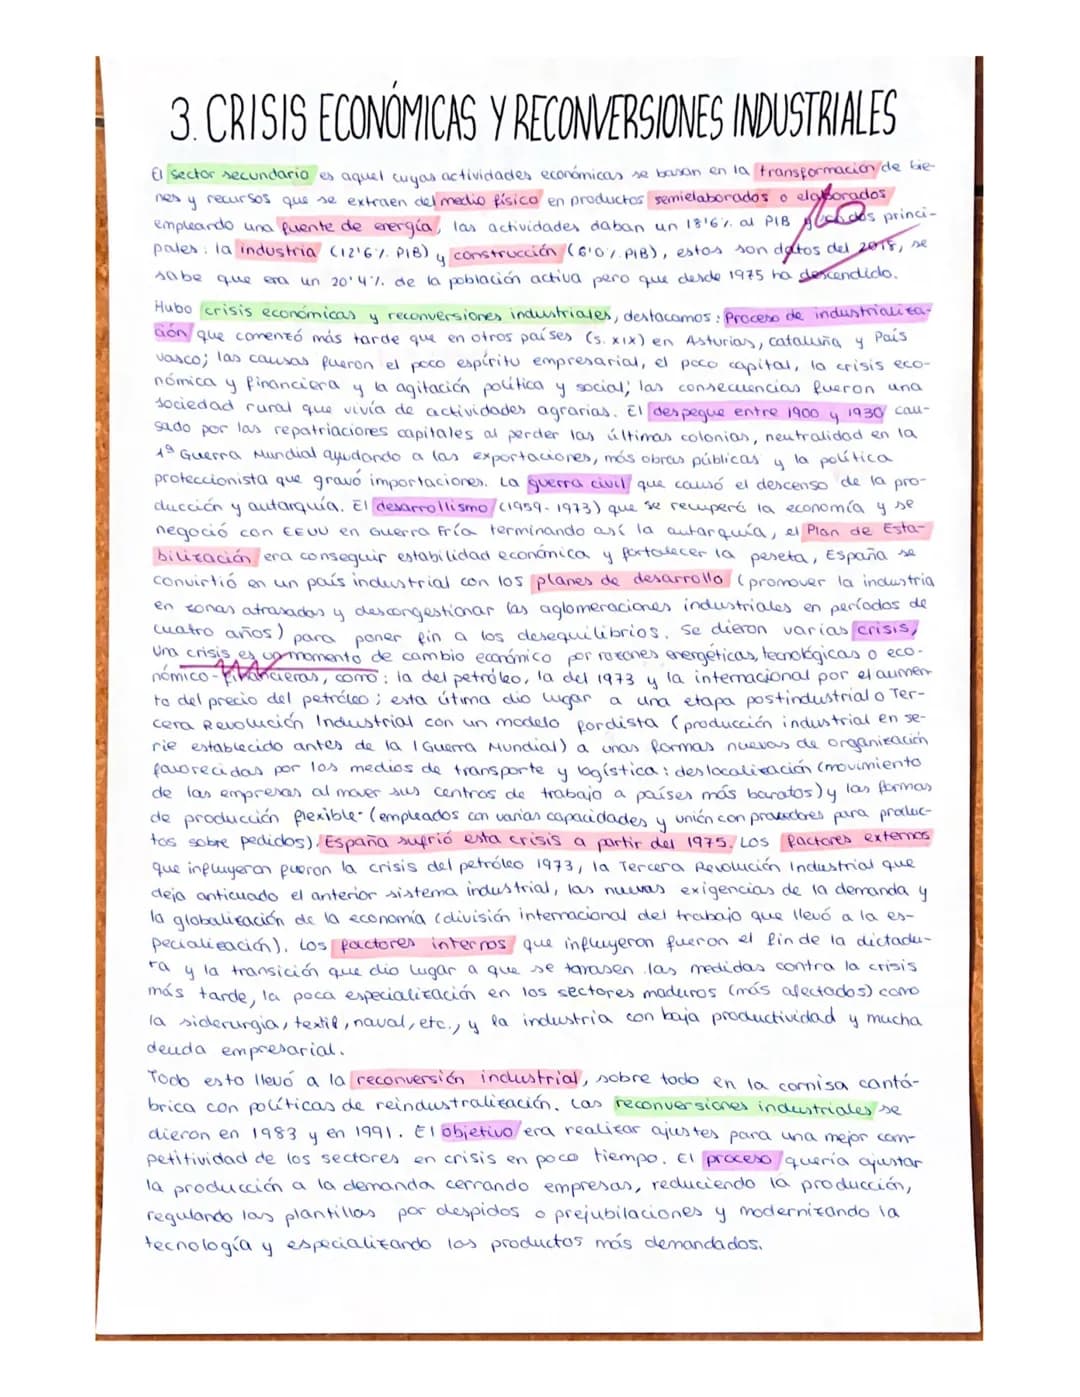 3. CRISIS ECONÓMICAS Y RECONVERSIONES INDUSTRIALES
El sector secundario es aquel cuyas actividades económicas se basan en la transformación de bie-
nes y recursos que se extraen del medio físico en productos semielaborados o elaborados
empleando una fuente de energía, las actividades daban un 18'6% al PIB princi-
pales: la industria (12'6% PIB) y construcción (6'0% PIB), estos son datos del 2018, se
sabe que era un 20'4% de la población activa pero que desde 1975 ha descendido.
Hubo crisis económicas y reconversiones industriales, destacamos: Proceso de industrializa-
ción que comenzó más tarde que en otros países (s. XIX) en Asturias, cataluña y País
vasco; las causas fueron el poco espíritu empresarial, el poco capital, la crisis eco-
nómica y financiera y la agitación política y social; las consecuencias fueron una
sociedad rural que vivía de actividades agrarias. El despegue entre 1900 y 1930 cau-
sado por las repatriaciones capitales al perder las últimas colonias, neutralidad en la
1ª Guerra Mundial ayudando a las exportaciones, más obras públicas y la política
proteccionista que gravó importaciones. La guerra civil que causó el descenso de la pro-
ducción y autarquía. El desarrollismo (1959-1973) que se recuperó la economía y se
negoció con EEUU en Guerra Fría terminando así la autarquía, el Plan de Esta-
bilización era conseguir estabilidad económica y fortalecer la peseta, España se
convirtió en un país industrial con los planes de desarrollo (promover la industria
en zonas atrasadas y descongestionar las aglomeraciones industriales en períodos de
cuatro años) para poner fin a los desequilibrios. Se dieron varias crisis,
Una crisis es un momento de cambio económico por razones energéticas, tecnológicas o eco-
nómico-financieras, como: la del petróleo, la del 1973 y la internacional por el aumen-
to del precio del petróleo; esta última dio lugar a una etapa postindustrial o Ter-
cera Revolución Industrial con un modelo fordista (producción industrial en se-
rie establecido antes de la I Guerra Mundial) a unas formas nuevas de organización
favorecidas por los medios de transporte y logística: deslocalización (movimiento
de las empresas al mover sus centros de trabajo a países más baratos) y las formas
de producción flexible (empleados con varias capacidades y unión con proveedores para produc-
tos sobre pedidos). España sufrió esta crisis a partir del 1975. Los factores externos
que influyeron fueron la crisis del petróleo 1973, la Tercera Revolución Industrial que
deja anticuado el anterior sistema industrial, las nuevas exigencias de la demanda y
la globalización de la economía (división internacional del trabajo que llevó a la es-
pecialización). Los factores internos que influyeron fueron el fin de la dictadu-
ra y la transición que dio lugar a que se tomasen las medidas contra la crisis
más tarde, la poca especialización en los sectores maduros (más afectados) como
la siderurgia, textil, naval, etc., y la industria con baja productividad y mucha
deuda empresarial.
Todo esto llevó a la reconversión industrial, sobre todo en la cornisa cantá-
brica con políticas de reindustralización. Las reconversiones industriales se
dieron en 1983 y en 1991. El objetivo era realizar ajustes para una mejor com-
petitividad de los sectores en crisis en poco tiempo. El proceso quería ajustar
la producción a la demanda cerrando empresas, reduciendo la producción,
regulando las plantillas por despidos o prejubilaciones y modernizando la
tecnología y especializando los productos más demandados.